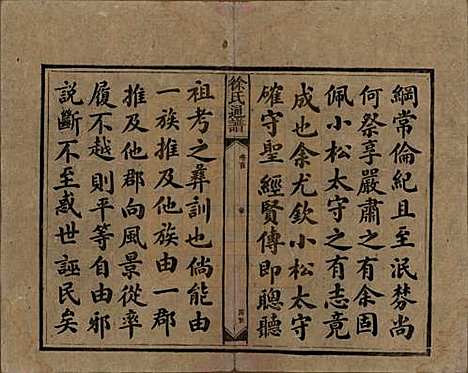 綱常倫紀且至泯棼尚
何祭享嚴肅之有余固
佩小松太守之有志竟
成也余尤欽小松太守
確守聖經賢傳即聰聽
徐氏通譜
卷首
祖考之彝訓也倘能由
一族推及他族由一郡
推及他郡向風景從率
履不越則平等自由邪
說斷不至惑世誣民矣